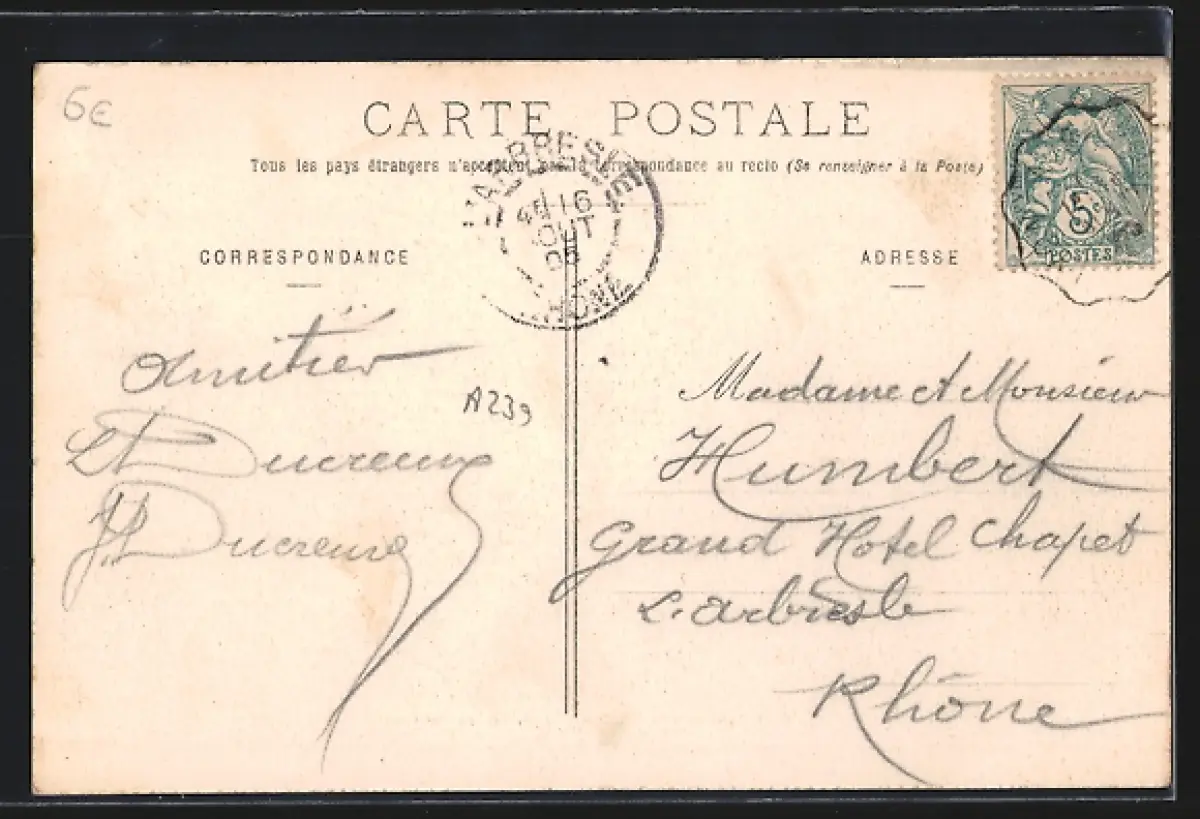 6€
CARTE POSTALE
Tous les pays étrangers n'acceptent pas la correspondance au recto (Se renseigner à la Poste)
L'ARBRESLE
16
OUT
RHONE
5c
POSTES
CORRESPONDANCE
ADRESSE
Amitiés
A239
Ducreux
Ducreux
Madame et Monsieur
Humbert
Grand Hotel Chapet
L'arbresle
Rhône